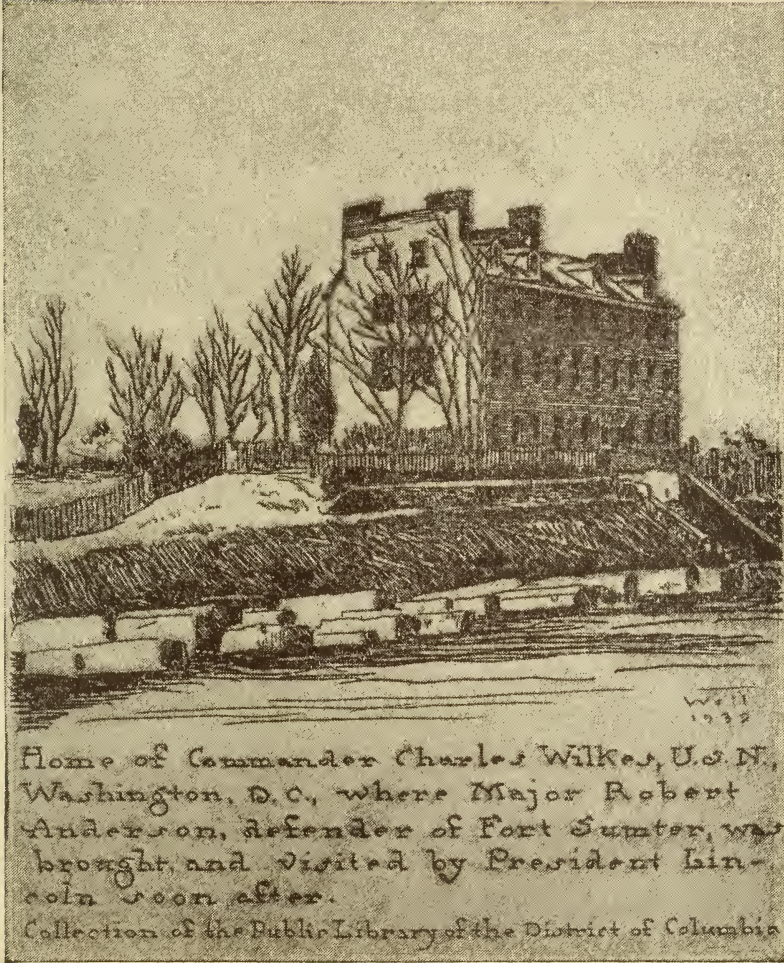 1932
Home of Commander Charles Wilkes, U.S.N.,
Washington, D.C., where Major Robert
Anderson, defender of Fort Sumter, was
brought, and visited by President Lin-
coln soon after.
Collection of the Public Library of the District of Columbia